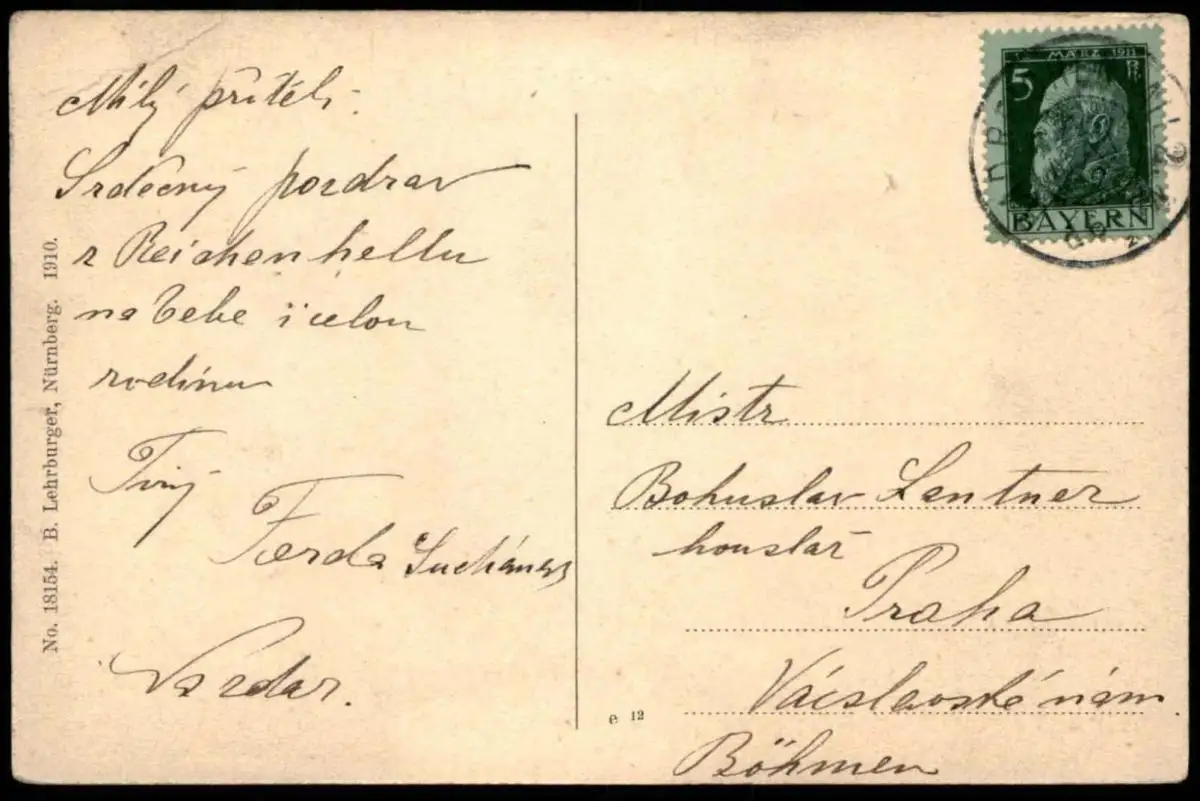 Milý příteli.
Srdečný pozdrav
z Reichenhellu
na Tebe i celou
rodinu
Tvůj
Ferda Suchánek
Nazdar.
No. 18154. B. Lehrburger, Nürnberg. 1910.
e 12
5 MÄRZ 1911
BAYERN
Mistr
Bohuslav Lantner
houslař
Praha
Václavské nám
Böhmen